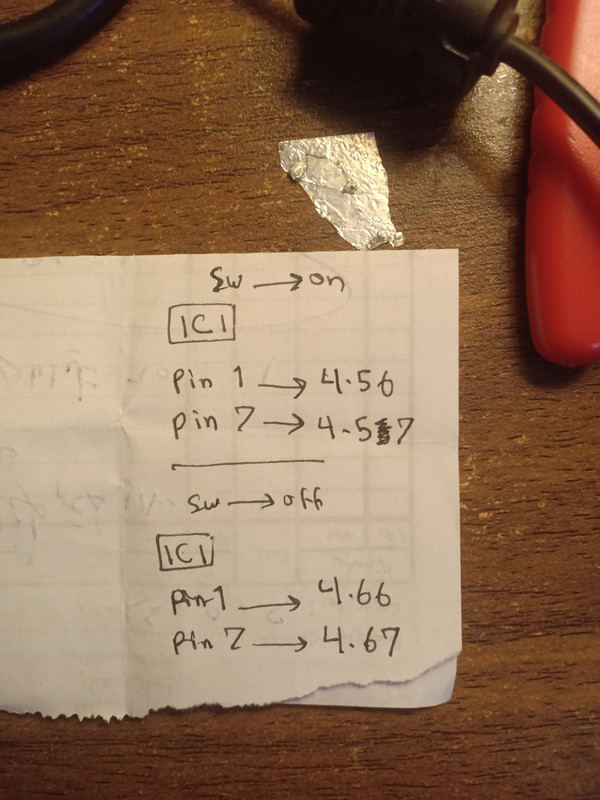 Sw → on
IC1
Pin 1 → 4.56
Pin 7 → 4.57
sw → off
IC1
Pin 1 → 4.66
Pin 7 → 4.67